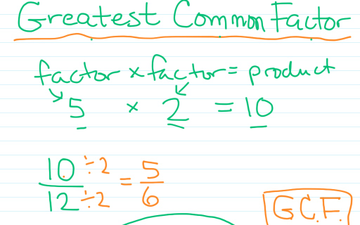 Greatest Common Factor
factor × factor = product
5 × 2 = 10
10 ÷2 = 5
12 ÷2 6
G.C.F.